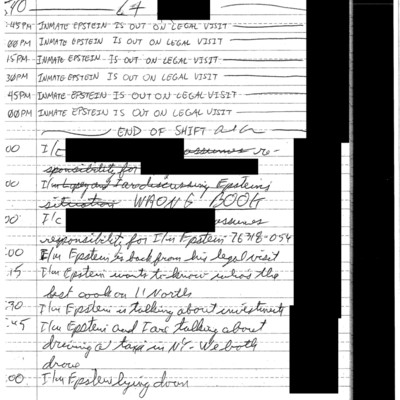 :45PM INMATE EPSTEIN IS OUT ON LEGAL VISIT
:00PM INMATE EPSTEIN IS OUT ON LEGAL VISIT
:15PM INMATE EPSTEIN IS OUT ON LEGAL VISIT
:30PM INMATE EPSTEIN IS OUT ON LEGAL VISIT
:45PM INMATE EPSTEIN IS OUT ON LEGAL VISIT
:00PM INMATE EPSTEIN IS OUT ON LEGAL VISIT
END OF SHIFT
:00 I/C assumes re-
sponsibility for
:00 I/m and I are discussing Epsteins
situation WRONG BOOK
:00 I/C assumes
responsibility for I/m Epstein-76318-054
:00 I/m Epstein is back from his legal visit
:15 I/m Epstein wants to know who's the
best cook on 11 North
:30 I/m Epstein is talking about investments
:45 I/m Epstein and I are talking about
driving a taxi in NY. We both
drove
:00 I/m Epstein lying down